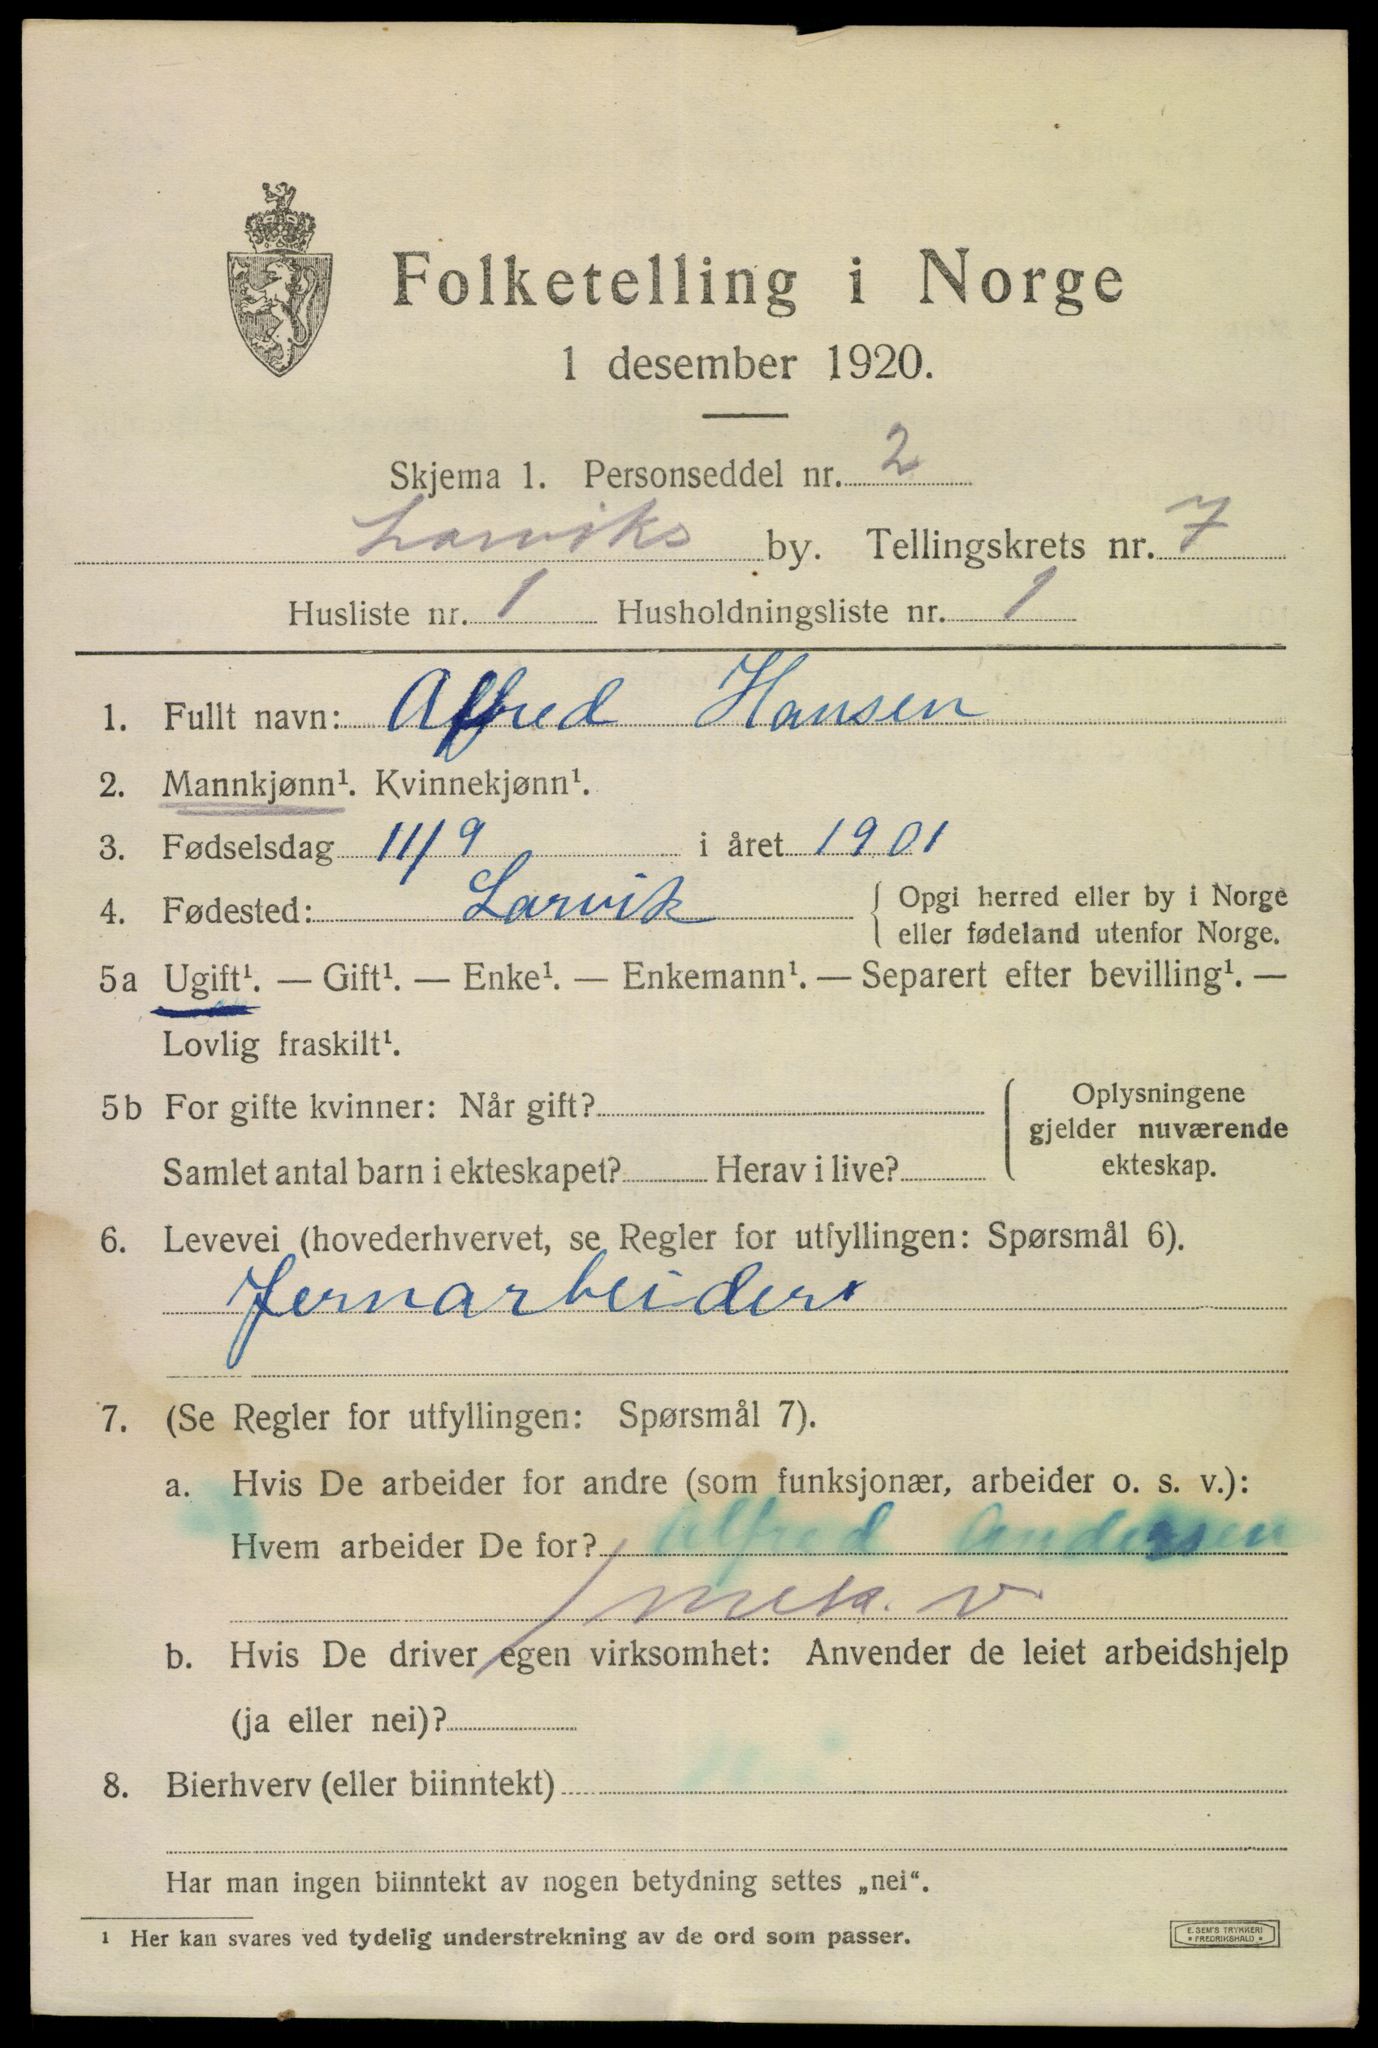 Folketelling i Norge
1 desember 1920.
Skjema 1. Personseddel nr. 2
Larviks by. Tellingskrets nr. 7
Husliste nr. 1 Husholdningsliste nr. 1
1. Fullt navn: Alfred Hansen
2. Mannkjønn¹. Kvinnekjønn¹.
3. Fødselsdag 11/9 i året 1901
4. Fødested: Larvik { Opgi herred eller by i Norge
eller fødeland utenfor Norge.
5a Ugift¹. — Gift¹. — Enke¹. — Enkemann¹. — Separert efter bevilling¹. —
Lovlig fraskilt¹.
5b For gifte kvinner: Når gift? { Oplysningene
gjelder nuværende
ekteskap.
Samlet antal barn i ekteskapet? Herav i live?
6. Levevei (hovederhvervet, se Regler for utfyllingen: Spørsmål 6).
Jernarbeider
7. (Se Regler for utfyllingen: Spørsmål 7).
a. Hvis De arbeider for andre (som funksjonær, arbeider o. s. v.):
Hvem arbeider De for? Alfred Andersen
mek. v
b. Hvis De driver egen virksomhet: Anvender de leiet arbeidshjelp
(ja eller nei)?
8. Bierhverv (eller biinntekt)
Har man ingen biinntekt av nogen betydning settes „nei“.
¹ Her kan svares ved tydelig understrekning av de ord som passer.
E. SEM'S TRYKKERI
* FREDRIKSHALD *